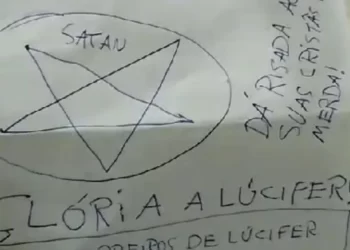 SATAN
DÁ RISADA
SUAS CRISTÃS
MERDA!
GLÓRIA A LÚCIFER!
DE LÚCIFER